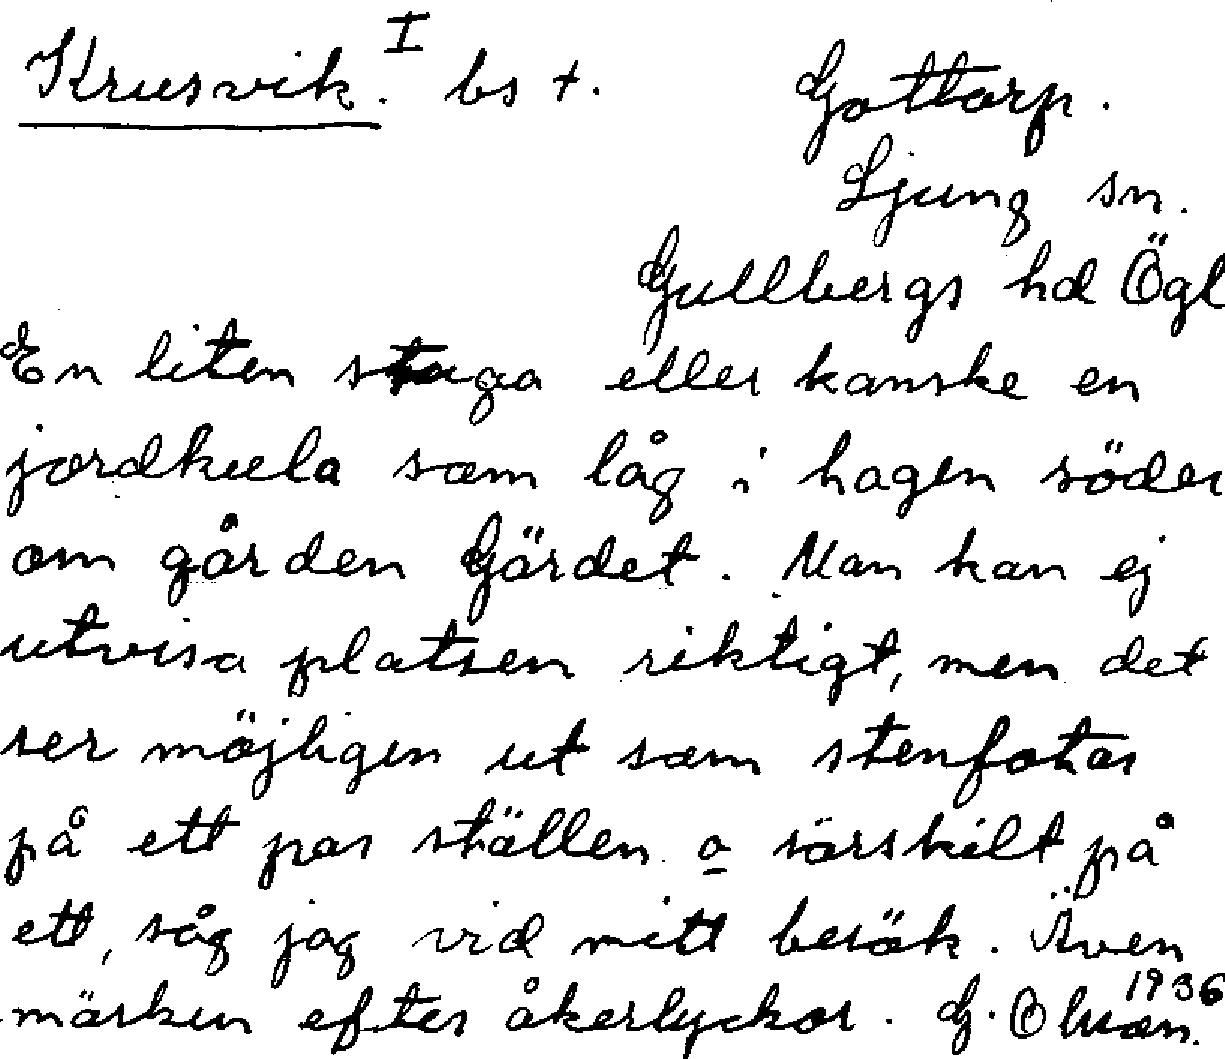 Krusvik. I bs +. Gottorp.
Ljung sn.
Gullbergs hd Ögl
En liten stuga eller kanske en
jordkula som låg i hagen söder
om gården Gärdet. Man kan ej
utvisa platsen riktigt, men det
ser möjligen ut som stenfotar
på ett par ställen o särskilt på
ett, såg jag vid mitt besök. Även
märken efter åkerlyckor. G. Olsson. 1936